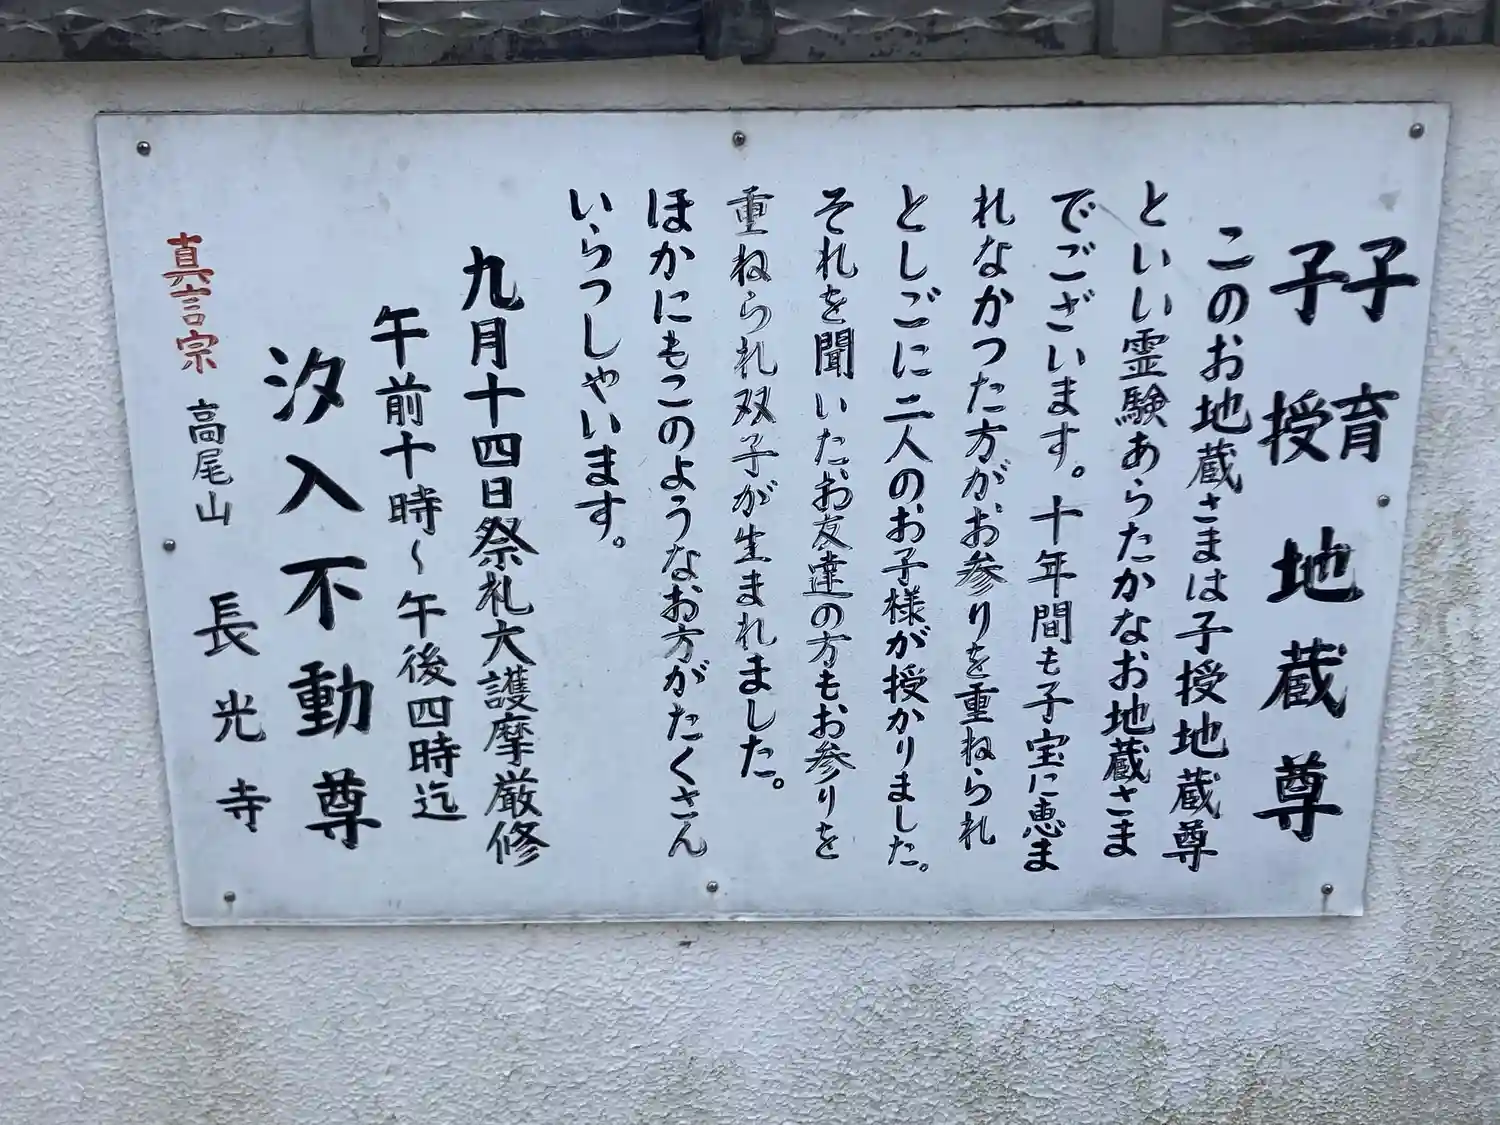 子育
子授 地蔵尊
このお地蔵さまは子授地蔵尊
といい霊験あらたかなお地蔵さま
でございます。十年間も子宝に恵ま
れなかつた方がお参りを重ねられ
としごに二人のお子様が授かりました。
それを聞いたお友達の方もお参りを
重ねられ双子が生まれました。
ほかにもこのようなお方がたくさん
いらつしやいます。
九月十四日祭礼大護摩厳修
午前十時～午後四時迄
汐入不動尊
真言宗 高尾山 長光寺